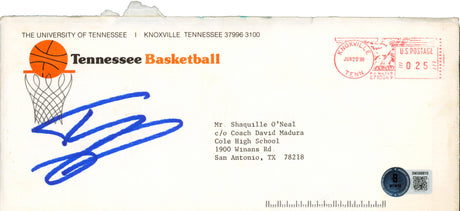 THE UNIVERSITY OF TENNESSEE | KNOXVILLE TENNESSEE 37996 3100
Tennessee Basketball
KNOXVILLE
TENN.
U.S. POSTAGE
025
Mr. Shaquille O'Neal
c/o Coach David Madura
Cole High School
1900 Winans Rd.
San Antonio, TX 78218